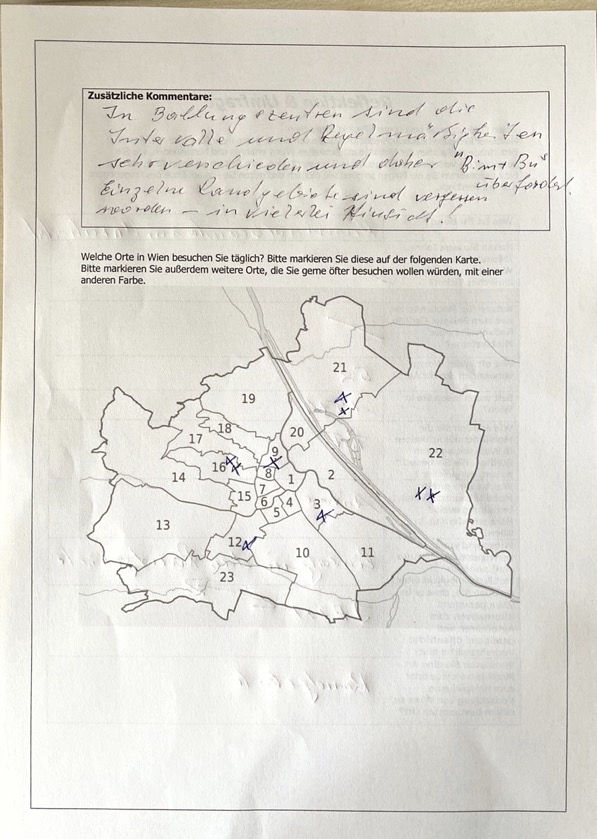 Zusätzliche Kommentare:
In Ballungszentren sind die
Intervalle und Regelmäßigkeiten
sehr verschieden und daher "Bim + Bus"
überfordert.
Einzelne Randgebiete sind vergessen
worden – in vielerlei Hinsicht!
Welche Orte in Wien besuchen Sie täglich? Bitte markieren Sie diese auf der folgenden Karte.
Bitte markieren Sie außerdem weitere Orte, die Sie gerne öfter besuchen wollen würden, mit einer
anderen Farbe.
21
19
20
18
17
9
22
16
8
14
1
2
7
15
6
4
3
5
13
12
10
11
23